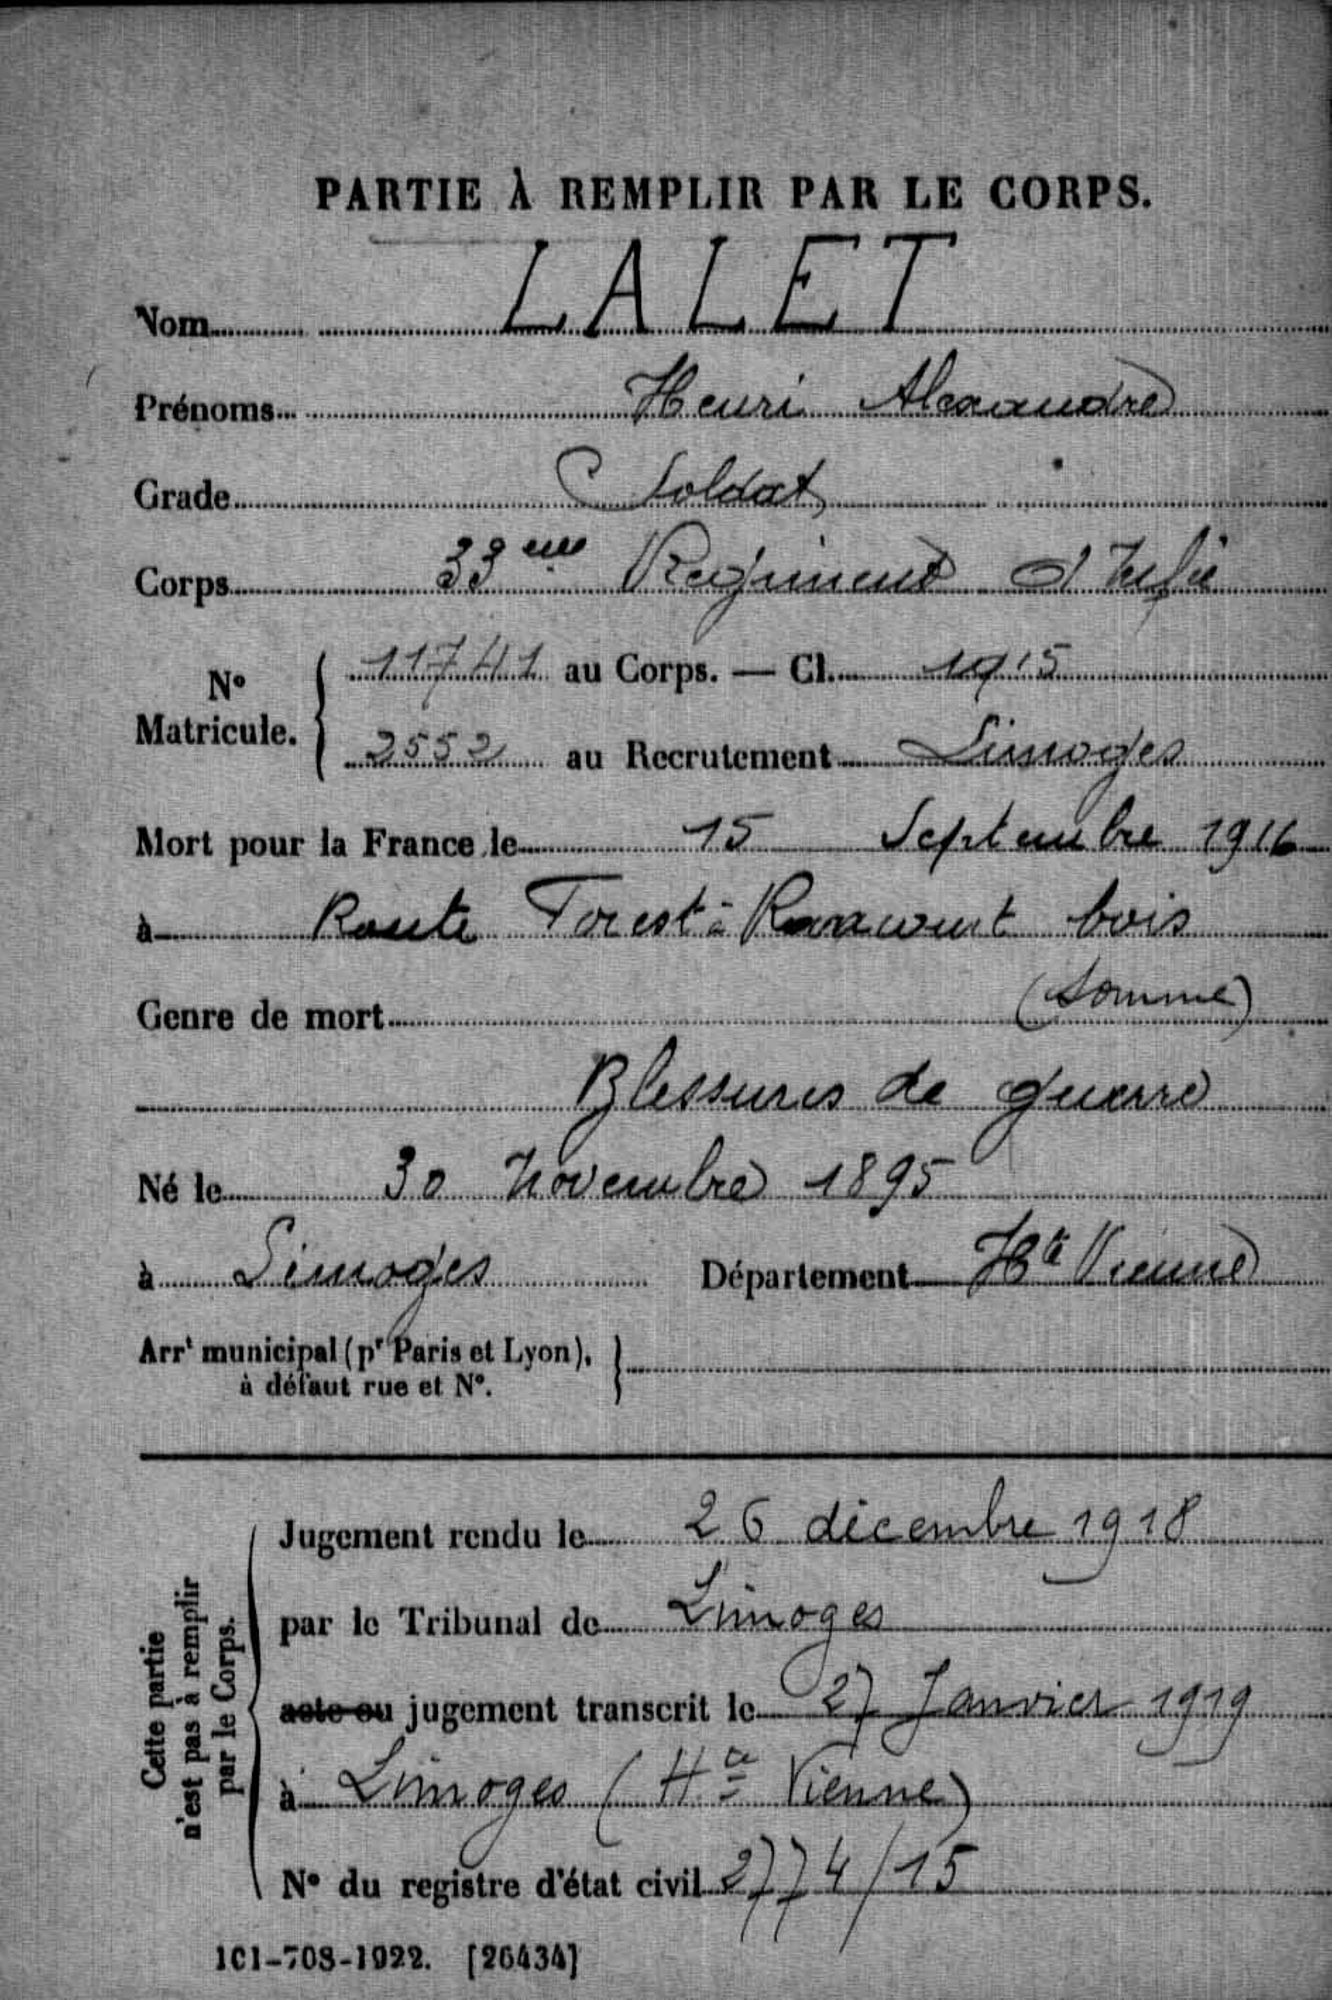 PARTIE À REMPLIR PAR LE CORPS.
Nom LALET
Prénoms Henri Alexandre
Grade Soldat
Corps 33eme Régiment d'Infie
N° Matricule. 11741 au Corps. — Cl. 1915
2552 au Recrutement Limoges
Mort pour la France le 15 Septembre 1916
à Route Forest à Rancourt bois
(Somme)
Genre de mort
Blessures de guerre
Né le 30 Novembre 1895
à Limoges Département Hte Vienne
Arrt municipal (pr Paris et Lyon),
à défaut rue et N°.
Cette partie
n'est pas à remplir
par le Corps.
Jugement rendu le 26 décembre 1918
par le Tribunal de Limoges
acte ou jugement transcrit le 27 Janvier 1919
à Limoges (Hte Vienne)
N° du registre d'état civil 2774/15
101-708-1922. [26434]